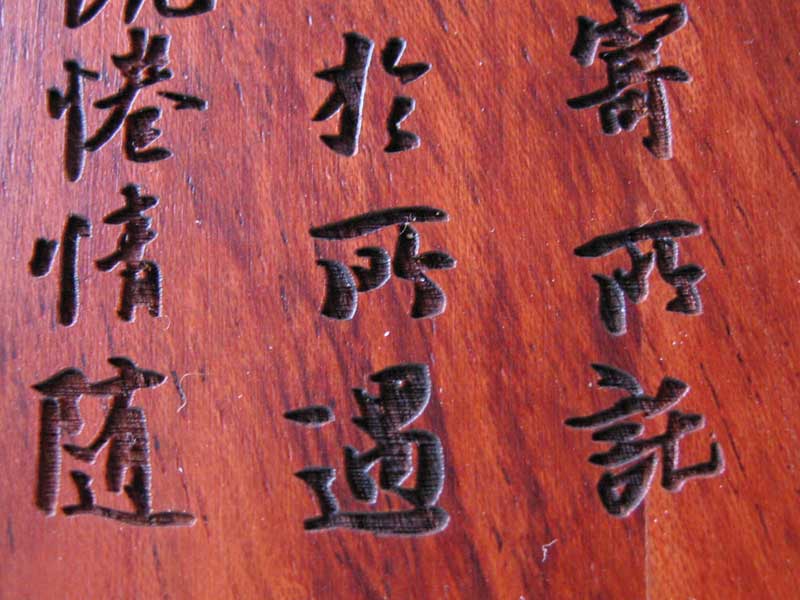 寄所託
於所遇
惓情随